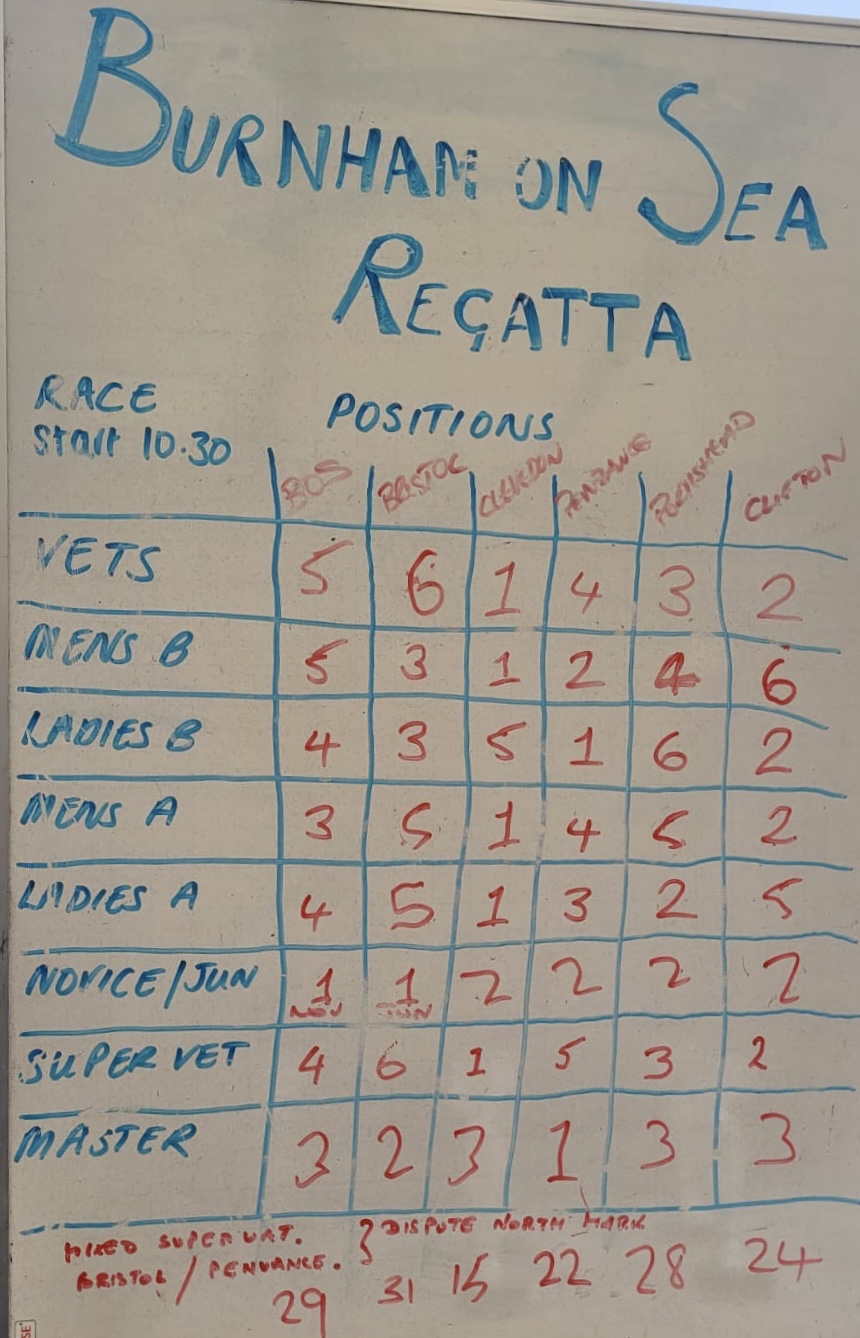 BURNHAM ON SEA
REGATTA
RACE POSITIONS
Start 10.30
BOS BRISTOL CLEVEDON PENZANCE PORTISHEAD CLIFTON
VETS 5 6 1 4 3 2
MENS B 5 3 1 2 4 6
LADIES B 4 3 5 1 6 2
MENS A 3 5 1 4 5 2
LADIES A 4 5 1 3 2 5
NOVICE/JUN 1 1 2 2 2 2
NOV JUN
SUPER VET 4 6 1 5 3 2
MASTER 3 2 3 1 3 3
MIXED SUPER VAT. } DISPUTE NORTH MARK
BRISTOL / PENVANCE.
29 31 15 22 28 24